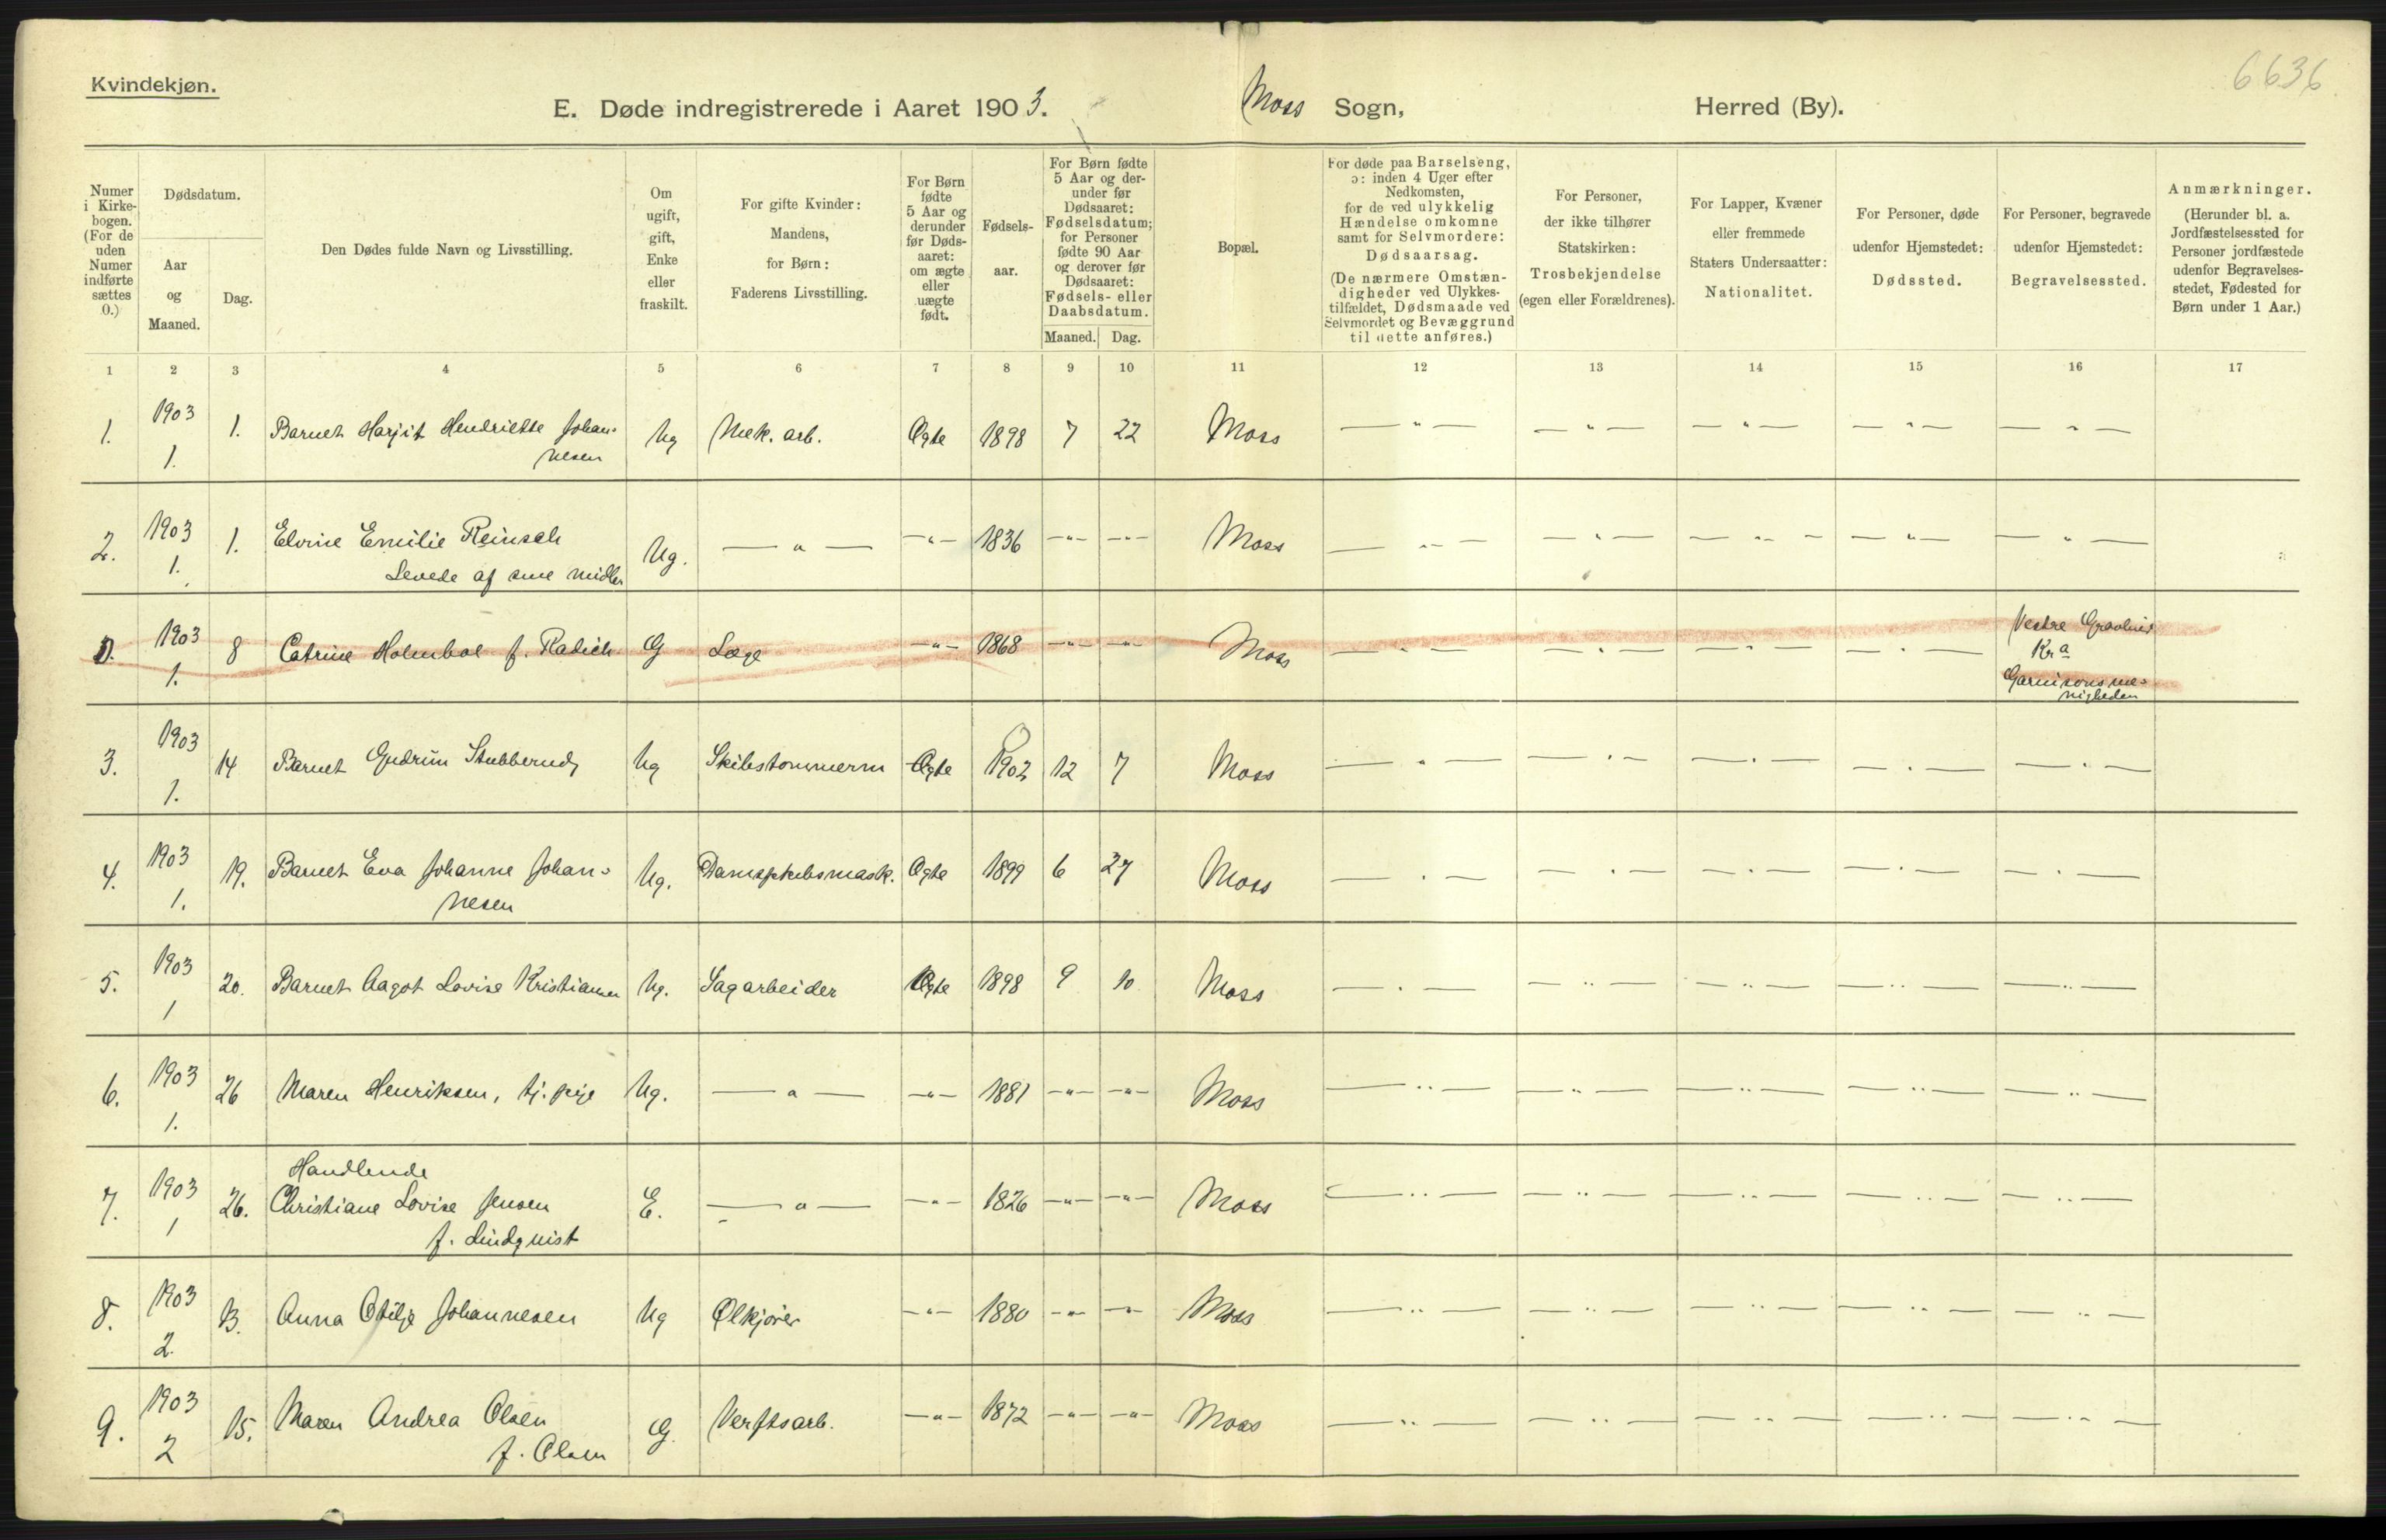 Kvindekjøn.
6636
E. Døde indregistrerede i Aaret 1903. Moss Sogn, Herred (By).
Numer i Kirke-bogen. (For de uden Numer indførte sættes 0.)
Dødsdatum.
Aar og Maaned.
Dag.
Den Dødes fulde Navn og Livsstilling.
Om ugift, gift, Enke eller fraskilt.
For gifte Kvinder: Mandens, for Børn: Faderens Livsstilling.
For Børn fødte 5 Aar og derunder før Døds-aaret: om ægte eller uægte født.
Fødsels-aar.
For Børn fødte 5 Aar og der-under før Dødsaaret: Fødselsdatum; for Personer fødte 90 Aar og derover før Dødsaaret: Fødsels- eller Daabsdatum.
Maaned. Dag.
Bopæl.
For døde paa Barselseng, ɔ: inden 4 Uger efter Nedkomsten, for de ved ulykkelig Hændelse omkomne samt for Selvmordere: Dødsaarsag. (De nærmere Omstæn-digheder ved Ulykkes-tilfældet, Dødsmaade ved Selvmordet og Bevæggrund til dette anføres.)
For Personer, der ikke tilhører Statskirken: Trosbekjendelse (egen eller Forældrenes).
For Lapper, Kvæner eller fremmede Staters Undersaatter: Nationalitet.
For Personer, døde udenfor Hjemstedet: Dødssted.
For Personer, begravede udenfor Hjemstedet: Begravelsessted.
Anmærkninger. (Herunder bl. a. Jordfæstelsessted for Personer jordfæstede udenfor Begravelses-stedet, Fødested for Børn under 1 Aar.)
1 2 3 4 5 6 7 8 9 10 11 12 13 14 15 16 17
1. 1903 1. 1. Barnet Harjit Hendriette Johan-
nesen Ug Mek. arb. Ægte 1898 7 22 Moss — " — — " — — " — — " — — " —
2. 1903 1. 1. Elvine Emilie Reinsch
Levede af sine midler Ug. — " — — " — 1836 — " — — " — Moss — " — — " — — " — — " — — " —
0. 1903 1. 8 Catrine Holmboe f. Radich G Læge — " — 1868 — " — — " — Moss — " — — " — — " — — " — Vestre Gravlund
Kra
Garnisonsme-
nigheden
3. 1903 1. 14 Barnet Gudrun Stubberud, Ug Skibstømmerm Ægte 1902 12 7 Moss — " — — " — — " — — " — — " —
4. 1903 1. 19. Barnet Eva Johanne Johan-
nesen Ug. Dampskibsmask. Ægte 1899 6 27 Moss — " — — " — — " — — " — — " —
5. 1903 1 20. Barnet Aagot Lovise Kristiansen Ug. Sagarbeider Ægte 1898 9 10 Moss — " — — " — — " — — " — — " —
6. 1903 1. 26 Maren Henriksen, tj. pige Ug. — " — — " — 1881 — " — — " — Moss — " — — " — — " — — " — — " —
Handlende
7. 1903 1 26. Christiane Lovise Jensen
f. Lindquist E. — " — — " — 1826 — " — — " — Moss — " — — " — — " — — " — — " —
8. 1903 2. 13. Anna Otilje Johannesen Ug Ølkjører — " — 1880 — " — — " — Moss — " — — " — — " — — " — — " —
9. 1903 2 15. Maren Andrea Olsen
f. Olsen G. Verftsarb. — " — 1872 — " — — " — Moss — " — — " — — " — — " — — " —